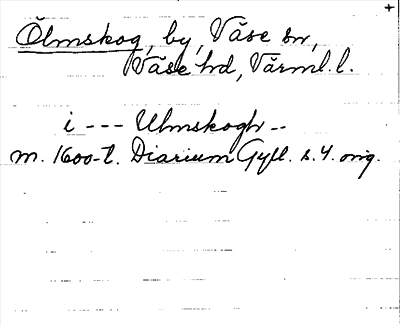 +
Ölmskog, by, Väse sn,
Väse hd, Värml. l.
i --- Ulmskogh --
m. 1600-t. Diarium Gyll. s. 4. orig.